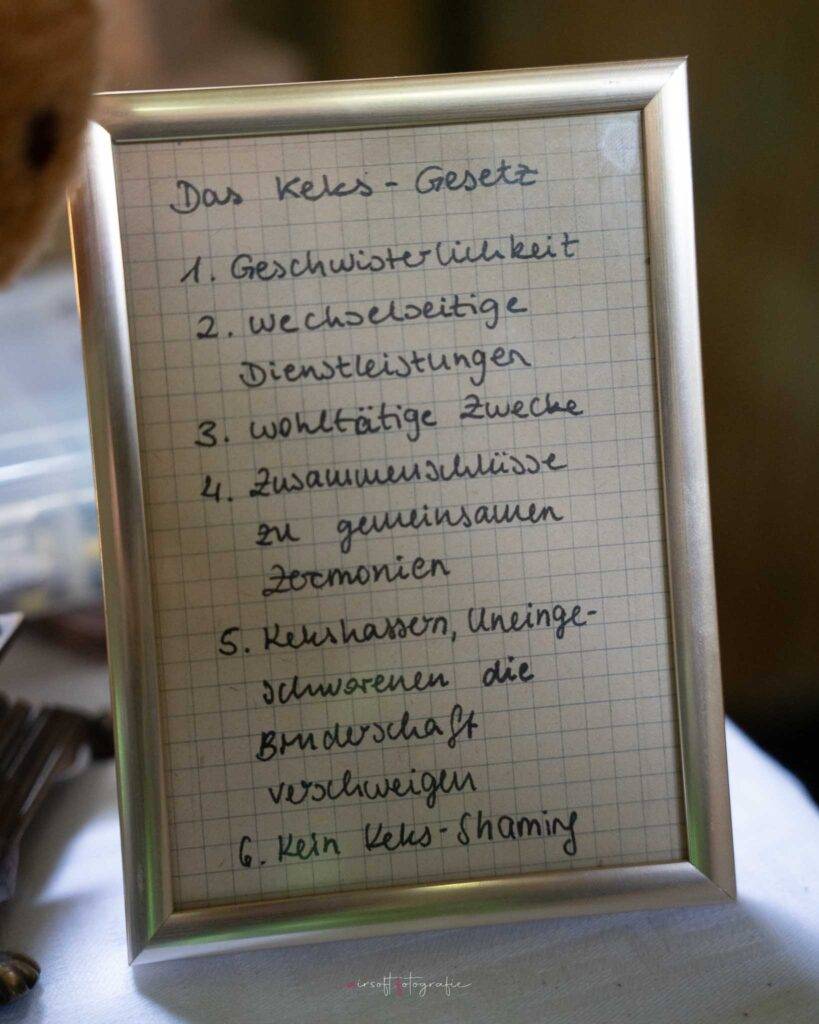 Das Keks-Gesetz
1. Geschwisterlichkeit
2. Wechselseitige
Dienstleistungen
3. Wohltätige Zwecke
4. Zusammenschlüsse
zu gemeinsamen
Zermonien
5. Kekshassern, Uneinge-
schworenen die
Bruderschaft
verschweigen
6. Kein Keks-Shaming
airsoftfotografie